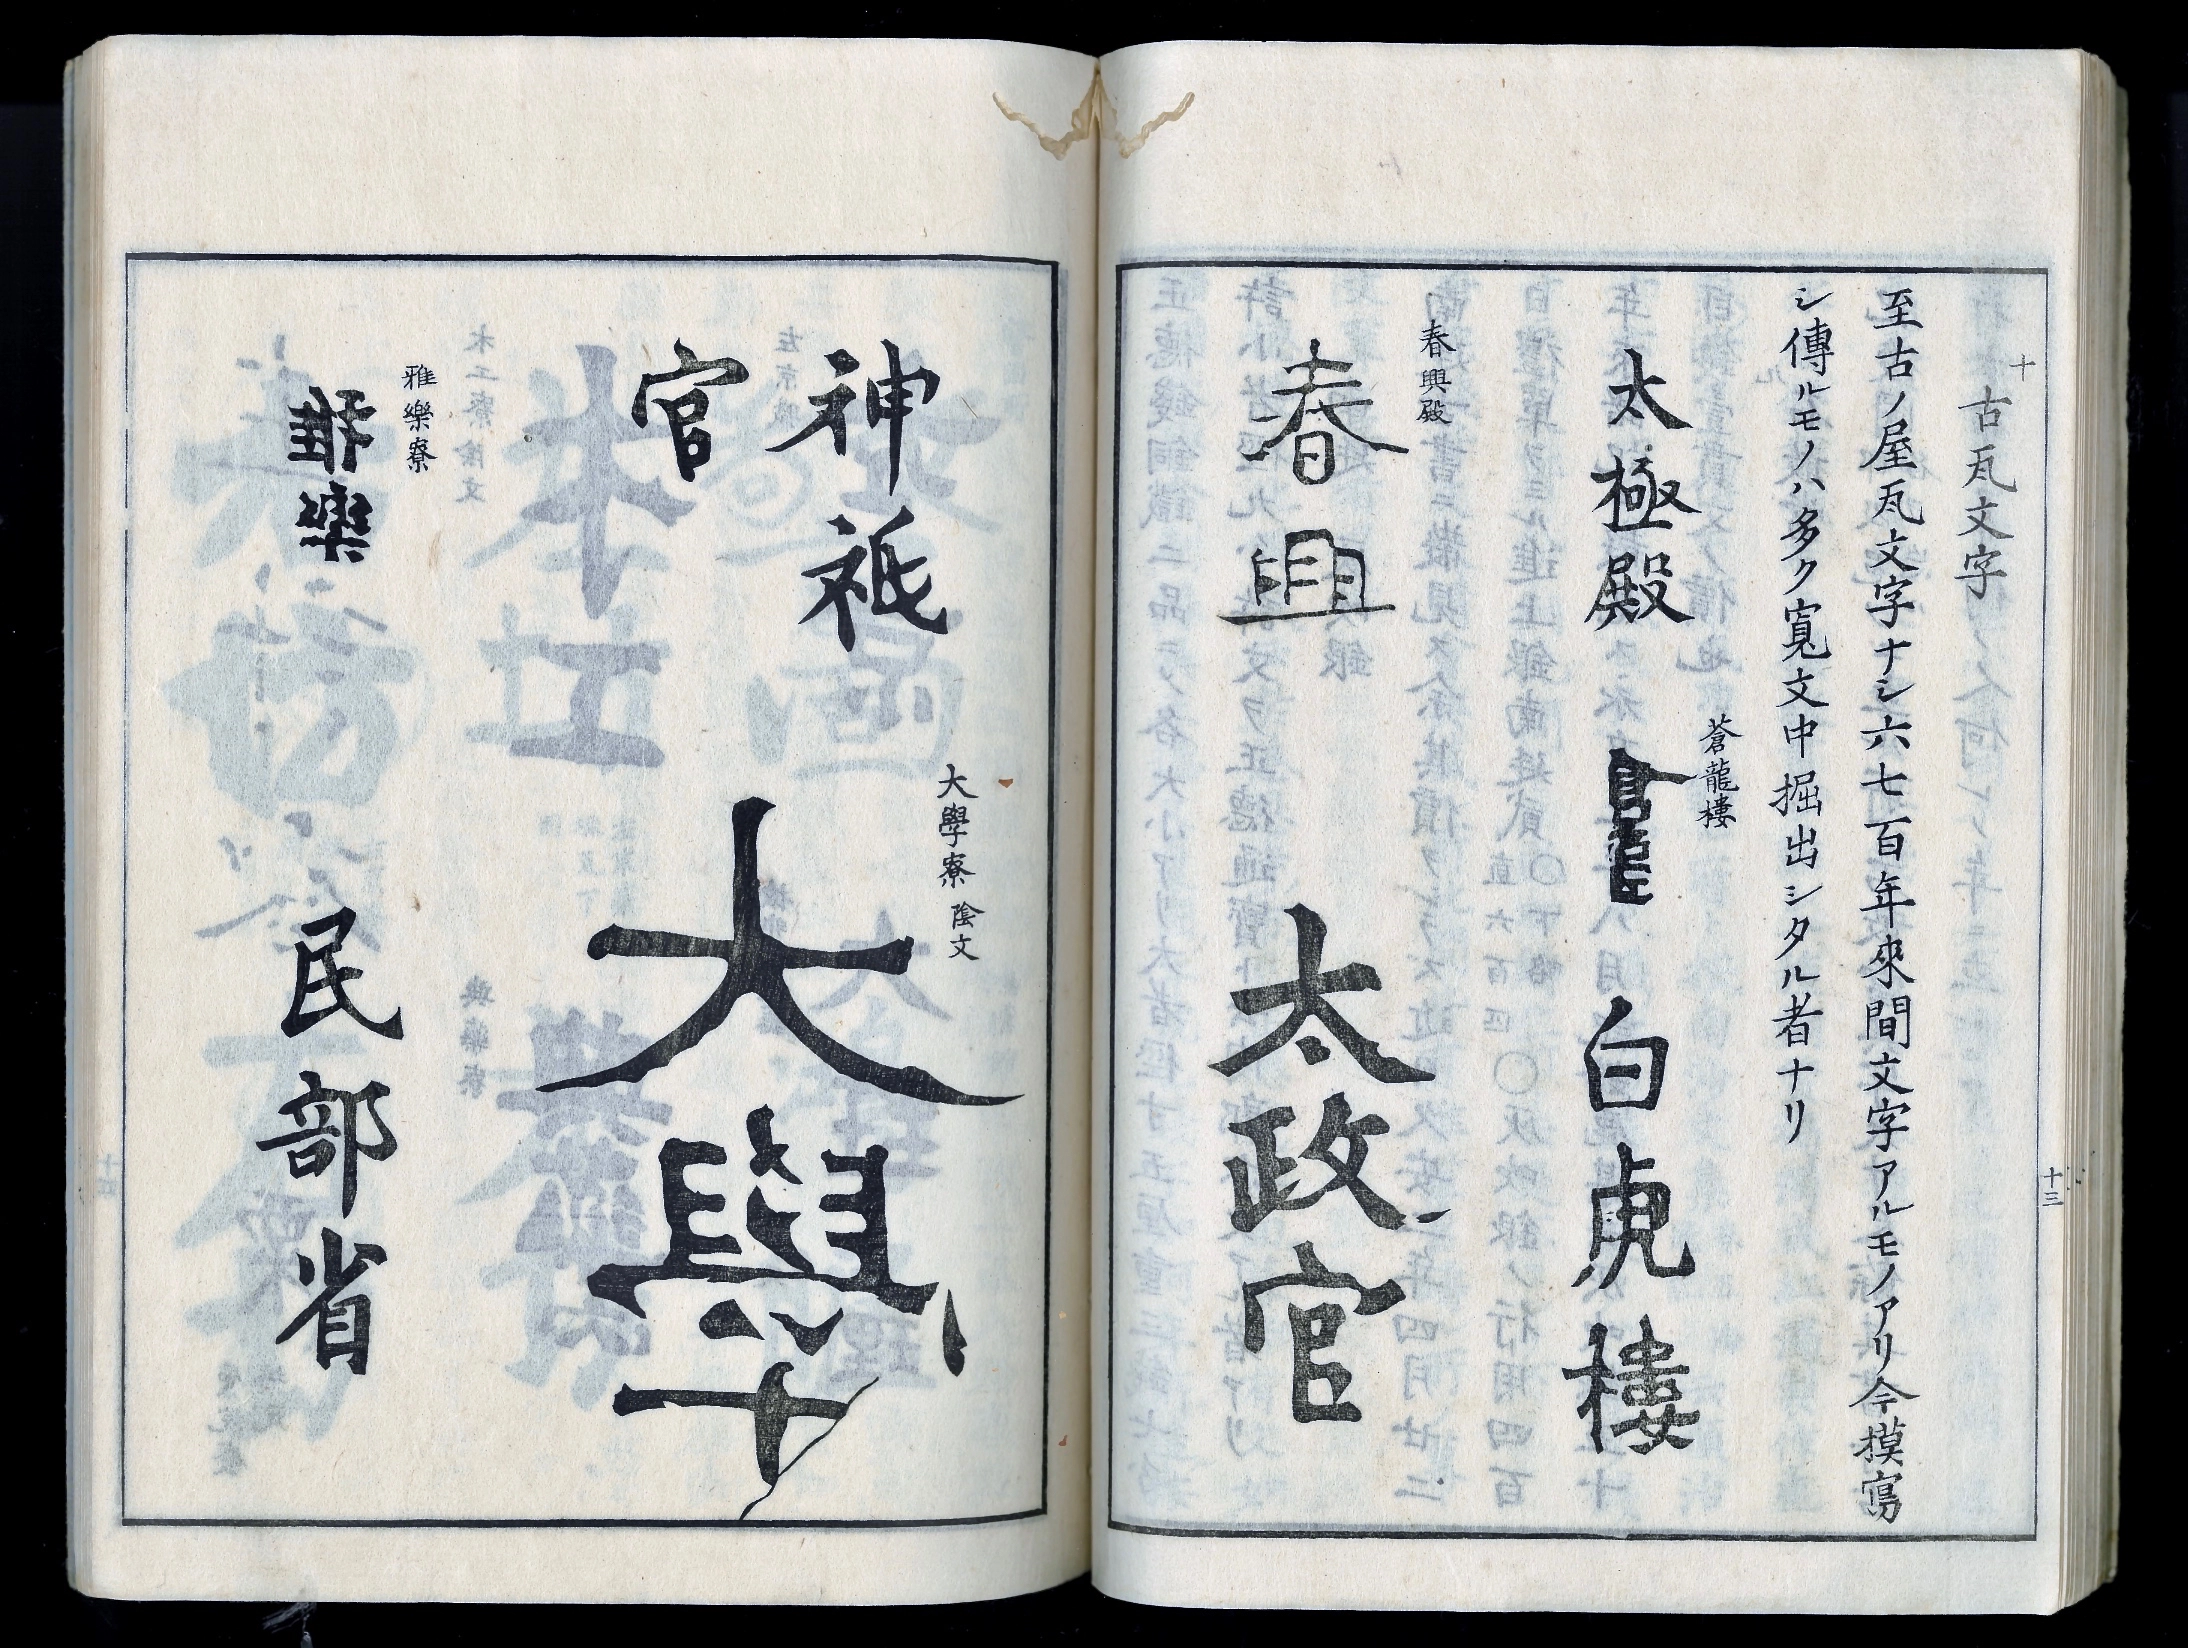 十
古瓦文字
至古ノ屋瓦文字ナシ六七百年來間文字アルモノアリ今摸寫
シ傳ルモノハ多ク寬文中掘出シタル者ナリ
太極殿
蒼龍樓
白虎樓
春興殿
春興
太政官
十三
神祇
官
大學寮 陰文
大學
雅樂寮
雅樂
民部省